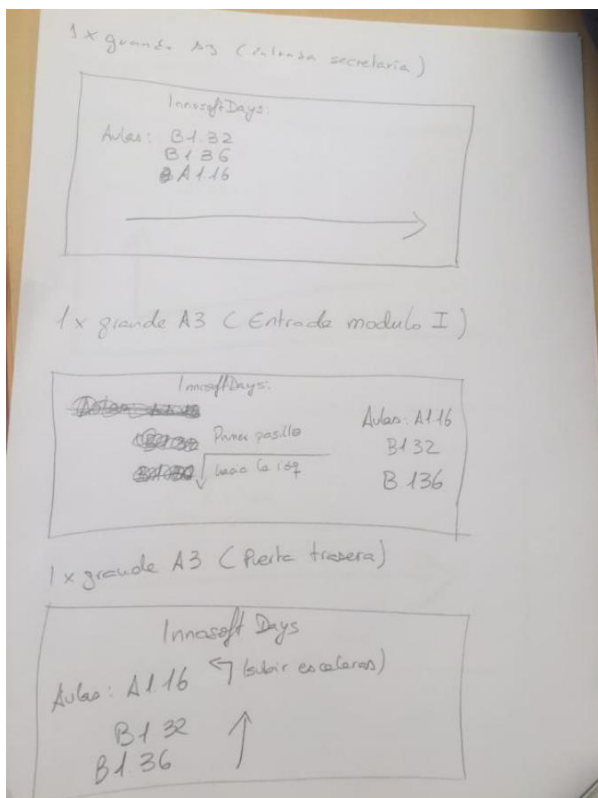 1 x grande A3 (Entrada secretaria)
InnosoftDays:
Aulas: B1.32
B136
A1.16
1 x grande A3 (Entrada modulo I)
InnosoftDays:
Primer pasillo
hacia la izq
Aulas: A1.16
B132
B.136
1 x grande A3 (Puerta trasera)
Innosoft Days
Aulas: A1.16 (subir escaleras)
B1.32
B1.36